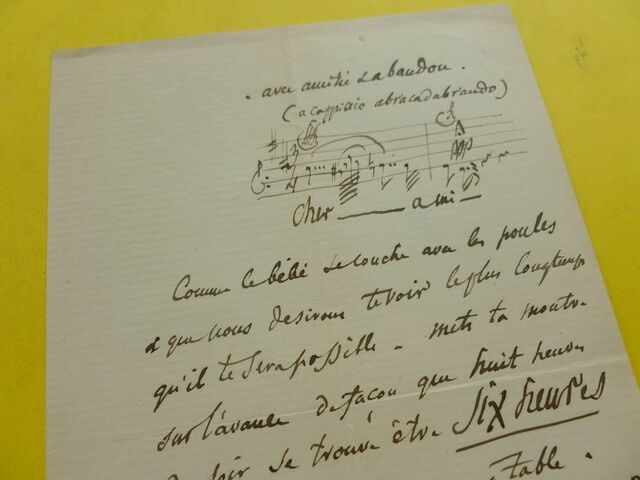 . avec amitié et abandon .
(a cappiccio abracadabrando)
Cher ami
Comme le bébé se couche avec les poules
& que nous desirons te voir le plus longtemps
qu'il te sera possible - mets ta montre
sur l'avance de façon que huit heures
soir se trouve être six heures
Table .